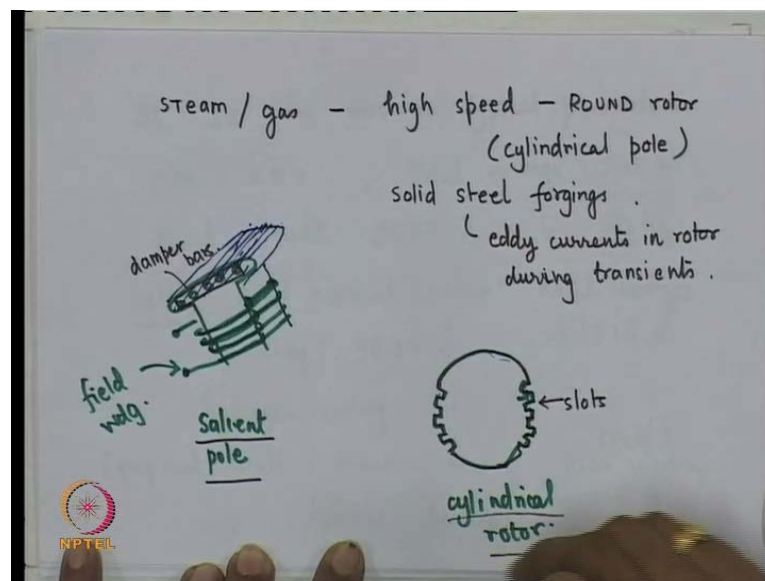 STeam / gas - high speed - ROUND rotor
(cylindrical pole)
solid steel forgings.
eddy currents in rotor
during transients.
damper bars.
field
wdg.
salient
pole
←slots
cylindrical
rotor.
NPTEL